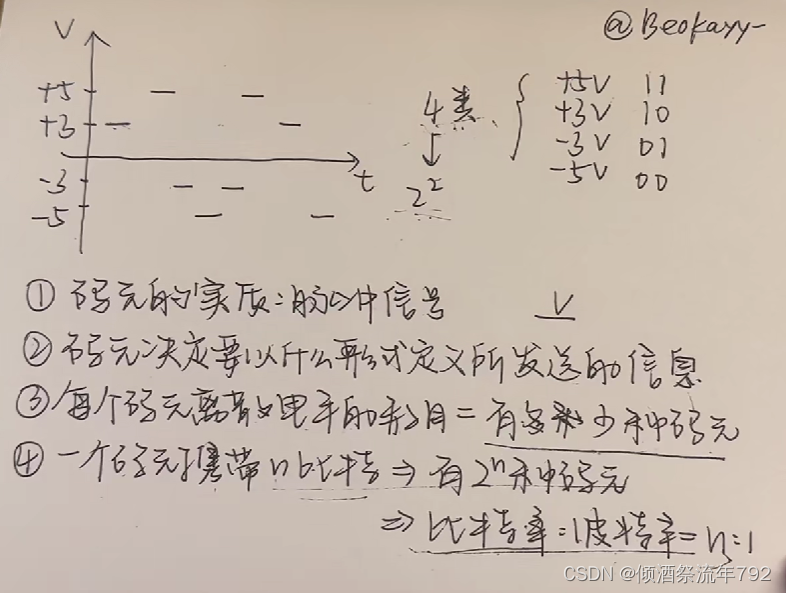 @Beokayy-
V
+5
+3
-3
-5
t
4类
2²
+5V 11
+3V 10
-3V 01
-5V 00
① 码元的实质:脉冲信号 V
② 码元决定要以什么形式定义所发送的信息
③ 每个码元离散电平的数目=有多少种码元
④ 一个码元携带n比特⇒有2ⁿ种码元
⇒比特率:波特率=n:1
CSDN @倾酒祭流年792